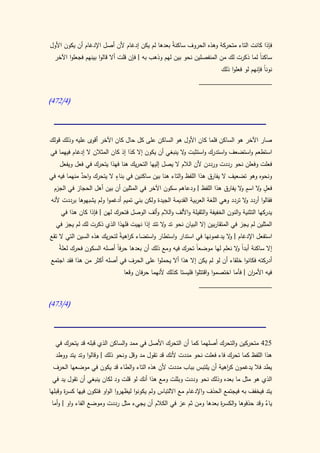 فإذا كانت التاء متحركة وهذه الحروف ساكنةً بعدها لم يكن إدغام لأن أصل الإدغام أن يكون الأول
ساكناً لما ذكرت لك من المنفصلين نحو بين لهم وذهب به | فإن قلت ألا قالوا بينهم فجعلوا الآخر
نوناً فإنهم لو فعلوا ذلك
(472/4)
صار الآخر هو الساكن فلما كان الأول هو الساكن على كل حال كان الآخر أقوى عليه وذلك قولك
استطعم واستضعف واستدرك واستثبت ولا ينبغي أن يكون إلا كذا إذ كان المثلان لا إدغام فيهما في
فعلت وفعلن نحو رددت ورددن لأن اللام لا يصل إليها التحريك هنا فهذا يتحرك في فعل ويفعل
ونحوه وهو تضعيف لا يفارق هذا اللفظ والتاء هنا بين ساكنين في بناءٍ لا يتحرك واحدٌ منهما فيه في
فعلٍ ولا اسمٍ ولا يفارق هذا اللفظ | ودعاهم سكون الآخر في المثلين أن بين أهل الحجاز في الجزم
فقالوا أردد ولا تردد وهي اللغة العربية القديمة الجيدة ولكن بني تميم أدغموا ولم يشبهوها برددت لأنه
يدركها التثنية والنون الخفيفة والثقيلة والألف واللام وألف الوصل فتحرك لهن | فإذا كان هذا في
المثلين لم يجز في المتقاربين إلا البيان نحو تد ولا تتد إذا نهيت فلهذا الذي ذكرت لك لم يجز في
استفعل الإدغام | ولا يدغمونها في استدار واستطار واستضاء كراهيةً لتحريك هذه السين التي لا تقع
إلا ساكنة أبداً ولا نعلم لها موضعاً تحرك فيه ومع ذلك أن بعدها حرفاً أصله السكون فحرك لعلةٍ
أدركته فكانوا خلقاء أن لو لم يكن إلا هذا ألا يحملوا على الحرف في أصله أكثر من هذا فقد اجتمع
فيه الأمران | فأما اختصموا واقتتلوا فليستا كذلك لأنهما حرفان وقعا
(473/4)
425 متحركين والتحرك أصلهما كما أن التحرك الأصل في ممد والساكن الذي قبله قد يتحرك في
هذا اللفظ كما تحرك فاء فعلت نحو مددت لأنك قد تقول مد وقل ونحو ذلك | وقالوا وتد يتد ووطد
يطد فلا يدغمون كراهية أن يلتبس بباب مددت لأن هذه التاء والطاء قد يكون في موضعها الحرف
الذي هو مثل ما بعده وذلك نحو وددت وبللت ومع هذا أنك لو قلت ود لكان ينبغي أن تقول يد في
يتد فيخفف به فيجتمع الحذف والإدغام مع الالتباس ولم يكونوا ليظهروا الواو فتكون فيها كسرة وقبلها
ياءٌ وقد حذفوها والكسرة بعدها ومن ثم عز في الكلام أن يجيء مثل رددت وموضع الفاء واو | وأما